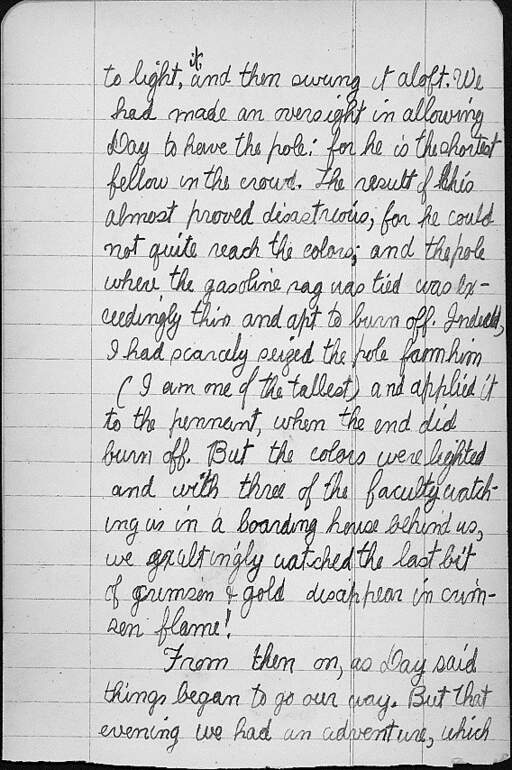 to light, it and then swung it aloft. We
had made an oversight in allowing
Day to have the pole: for he is the shortest
fellow in the crowd. The result of this
almost proved disastrous, for he could
not quite reach the colors; and the pole
where the gasoline rag was tied was ex-
ceedingly thin and apt to burn off. Indeed,
I had scarcely seized the pole from him
(I am one of the tallest) and applied it
to the pennant, when the end did
burn off. But the colors were lighted
and with three of the faculty watch-
ing us in a boarding house behind us,
we exultingly watched the last bit
of crimson & gold disappear in crim-
son flame!
From then on, as Day said
things began to go our way. But that
evening we had an adventure, which